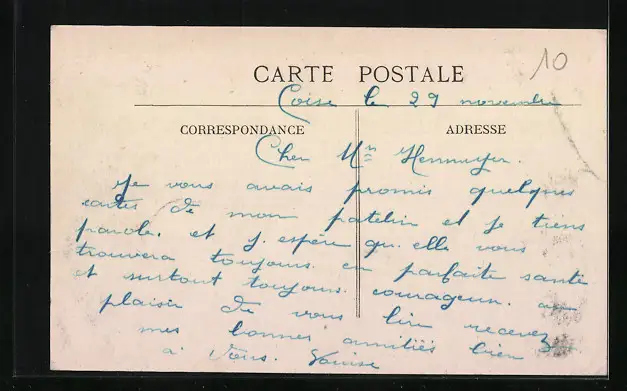 10
CARTE POSTALE
Coise le 29 novembre
CORRESPONDANCE
ADRESSE
Cher Mr Hennuyer.
Je vous avais promis quelques
cartes de mon patelin et je tiens
parole. et j. espère qu. elle vous
trouvera toujours. en parfaite santé
et surtout toujours. courageux. au
plaisir de vous lire recevez
mes bonnes amitiés bien
à Vous. Louise